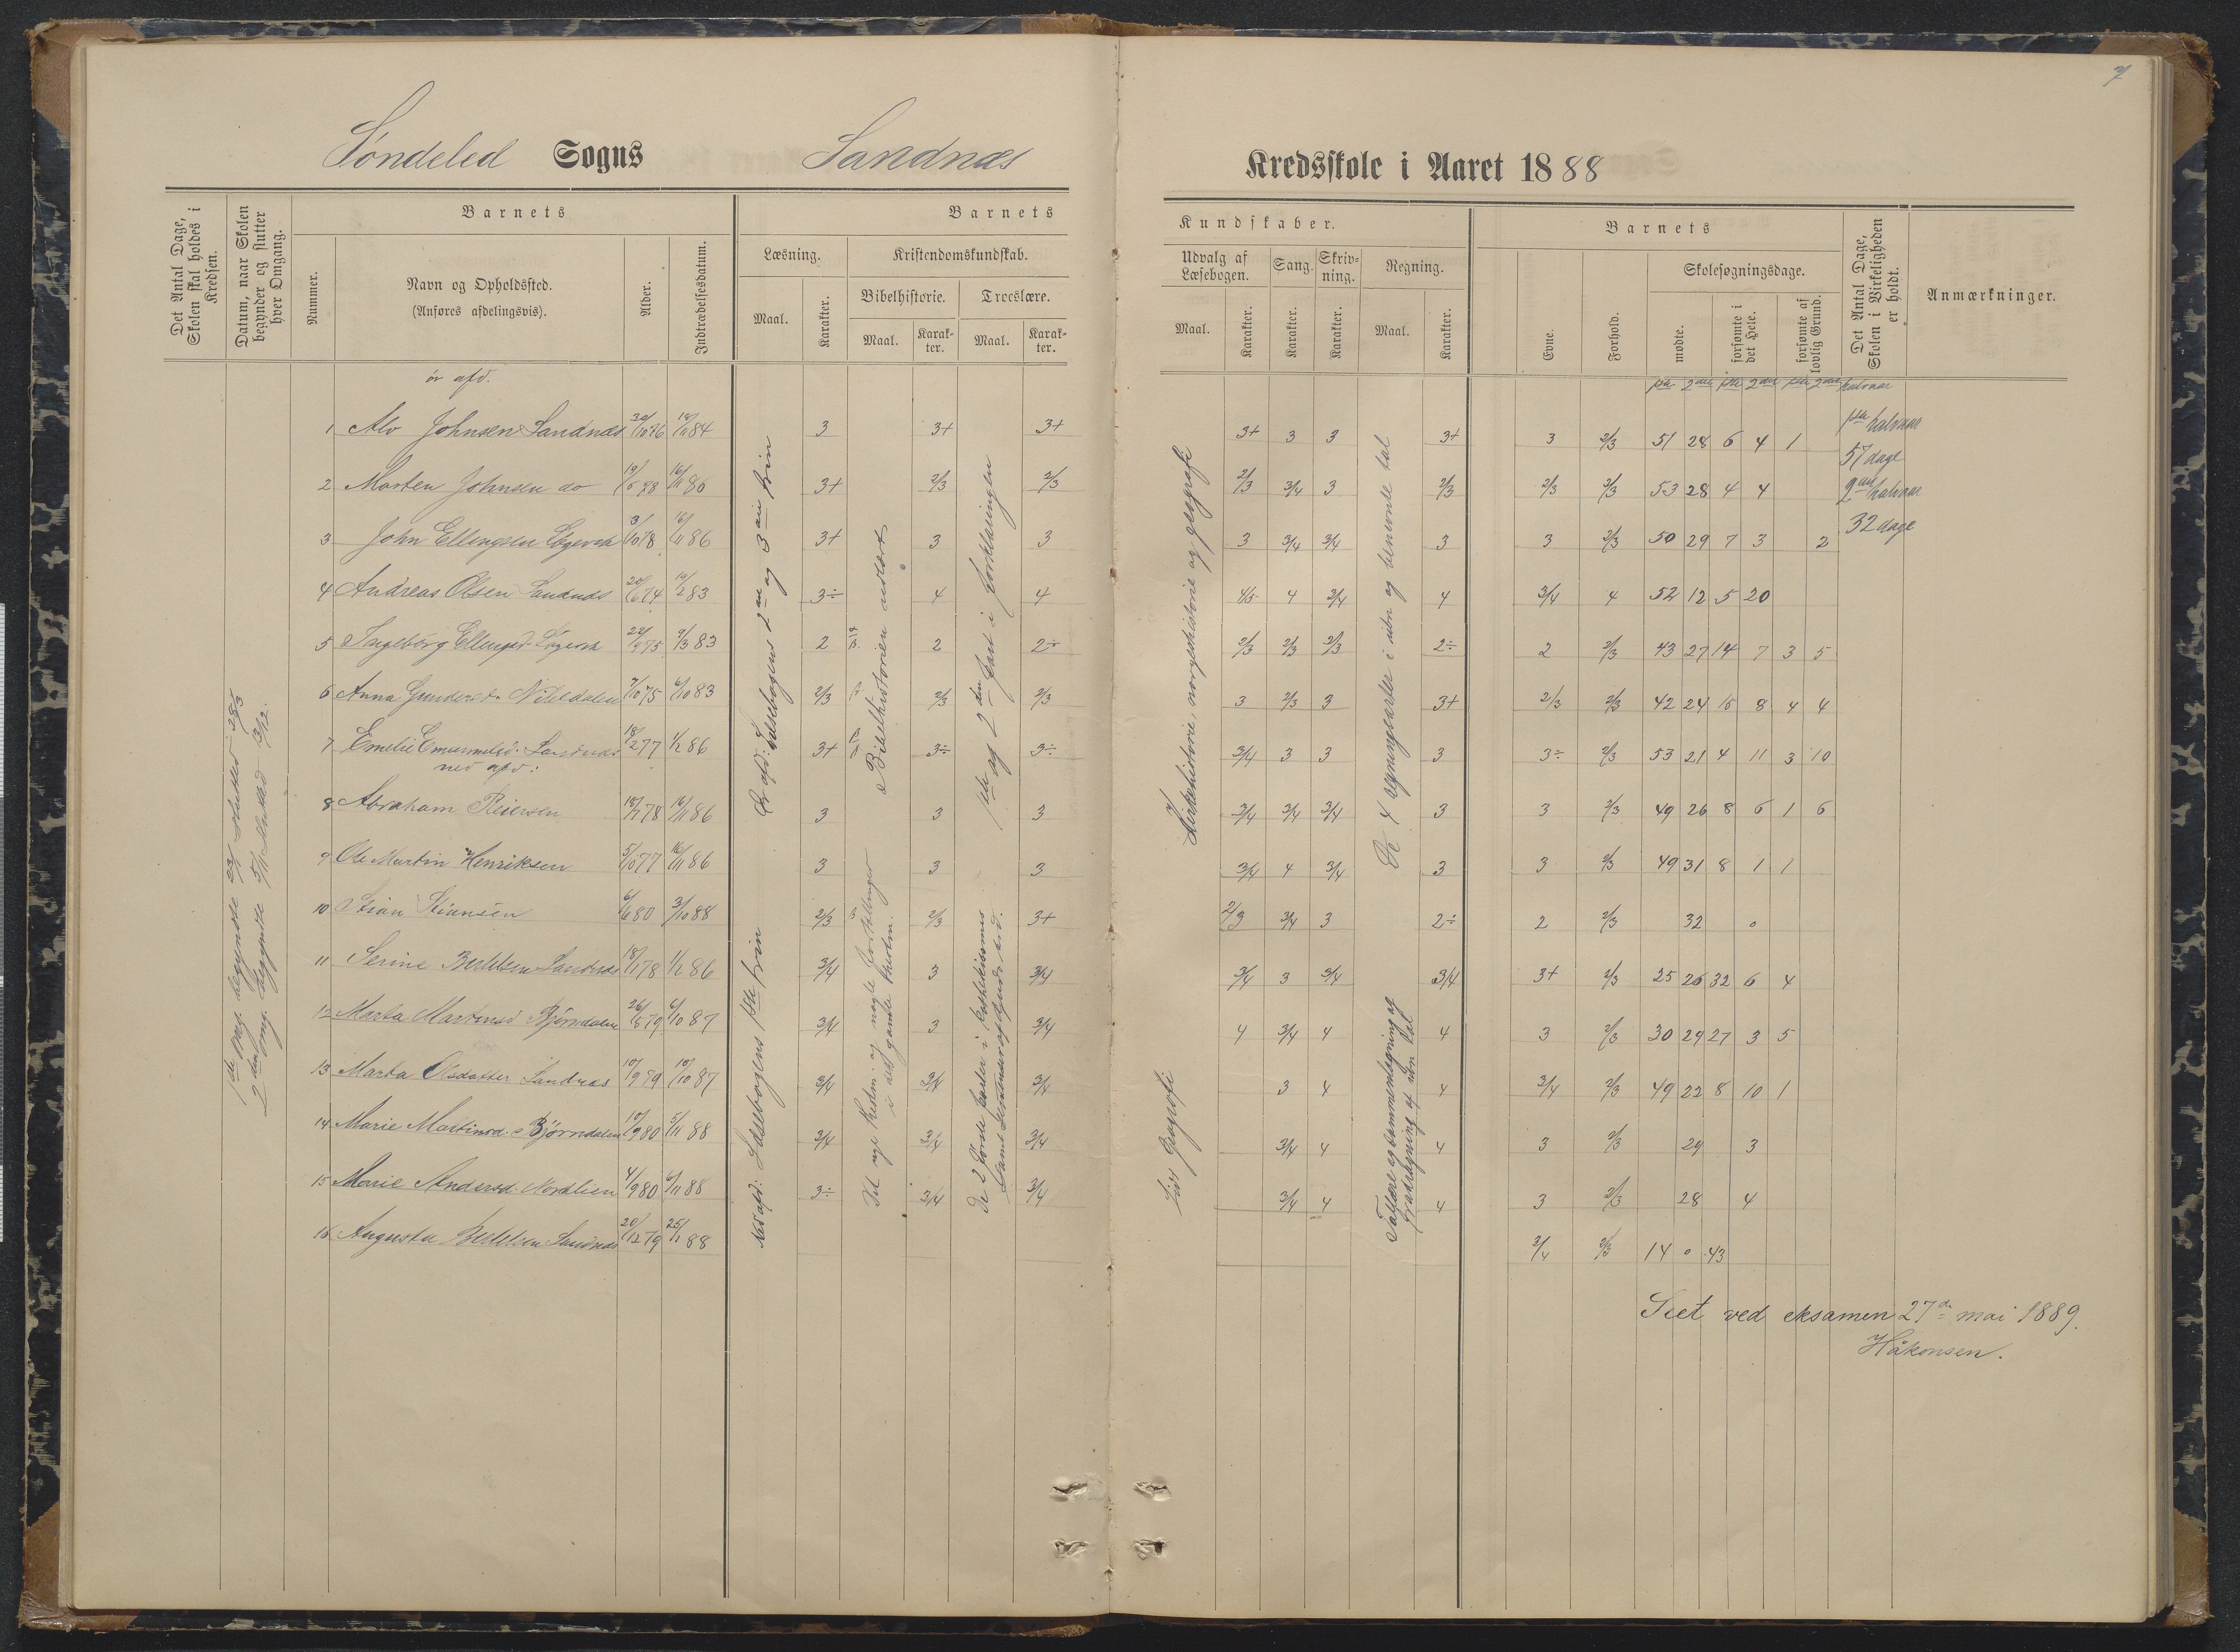 7
Søndeled Sogns Sandnæs Kredsskole i Aaret 1888
Det Antal Dage, Skolen skal holdes i Kredsen.
Datum, naar Skolen begynder og slutter hver Omgang.
Barnets
Nummer.
Navn og Opholdssted.
(Anføres afdelingsvis).
Alder.
Indtrædelsesdatum.
Barnets Kundskaber.
Læsning.
Maal.
Karakter.
Kristendomskundskab.
Bibelhistorie.
Maal.
Karakter.
Troeslære.
Maal.
Karakter.
Udvalg af Læsebogen.
Maal.
Karakter.
Sang.
Karakter.
Skrivning.
Karakter.
Regning.
Maal.
Karakter.
Barnets
Evne.
Forhold.
Skolesøgningsdage.
mødte.
forsømte i det Hele.
forsømte af lovlig Grund.
Det Antal Dage, Skolen i Virkeligheden er holdt.
Anmærkninger.
øv afd.
1 Alv Johnsen Sandnæs 30/10 76 18/11 84 3 3+ 3+ 3+ 3 3 3+ 3 2/3 51 28 6 4 1
2 Morten Johnsen do 16/11 86 3+ 2/3 2/3 2/3 3/4 3 2/3 2/3 2/3 53 28 4 4
3 John Ellengsen 3/10 78 16/11 86 3+ 3 3 3 3/4 3/4 3 3 2/3 50 29 7 3 2
4 Andreas Olsen Sandnæs 20/6 74 19/2 83 3÷ 4 4 4/5 4 3/4 4 3/4 4 52 12 5 20
5 Ingeborg 83 2 2 2÷ 2/3 2/3 2/3 2÷ 2 2/3 43 27 14 7 3 5
6 Anna 7/10 75 6/10 83 2/3 2/3 2/3 3 2/3 3 3+ 2/3 2/3 42 24 15 8 4 4
7 Emelie Sandnæs 18/2 77 1/2 86 3+ 3÷ 3÷ 3/4 3 3 3 3÷ 2/3 53 21 4 11 3 10
ned afd:
8 Abraham Reiersen 18/7 78 16/11 86 3 3 3 3/4 3/4 3/4 3 3 2/3 49 26 8 6 1 6
9 Ole Martin Henriksen 5/10 77 16/11 86 3 3 3 3/4 4 3/4 3 3 2/3 49 31 8 1 1
10 Stian Stiansen 6/6 80 3/10 88 2/3 2/3 3+ 2/3 3/4 3 2÷ 2 2/3 32 0
11 Serine Bertelsen Sandnæs 18/1 78 1/2 86 3/4 3 3/4 3/4 3 3/4 3/4 3+ 2/3 25 26 32 6 4
12 Marta Martinsd Bjørndalen 79 6/10 87 3/4 3 3/4 4 3/4 4 4 3 2/3 30 29 27 3 5
13 Marta Olsdatter Sandnæs 10/9 79 10/10 87 3/4 3/4 3/4 3 4 4 3/4 2/3 49 22 8 10 1
14 Marie Martinsd. Bjørndalen 10/9 80 5/11 88 3/4 3/4 3/4 3/4 4 4 3 2/3 29 3
15 Marie Andersd. Nordlien 4/9 80 6/11 88 3÷ 3/4 3/4 3/4 4 4 3 2/3 28 4
16 Augusta Bertelsen Sandnæs 20/12 79 25/1 88 3/4 2/3 14 0 43
1ste omg. begyndte sluttet 28/3
2den omg. begyndte 5/11 sluttet 13/12.
Læsebogens 2en og 3die trin
Bibelhistorien
1ste og 2den part i forklaringen
Kirkehistorie, norgeshistorie og geografi
De 4 regningsarter i ubn og benevnte tal
Ned afd: Læsebogens 1ste trin
Det nye testm. og nogle fortellinger i det gamle testm.
De 2 første parter i katekismus
Lidt Geografi
Tallære og sammenlægning og fradragning af ubn tal
1ste halvaar
57 dage
2det halvaar
32 dage
Seet ved eksamen 27de mai 1889.
Håkonsen.